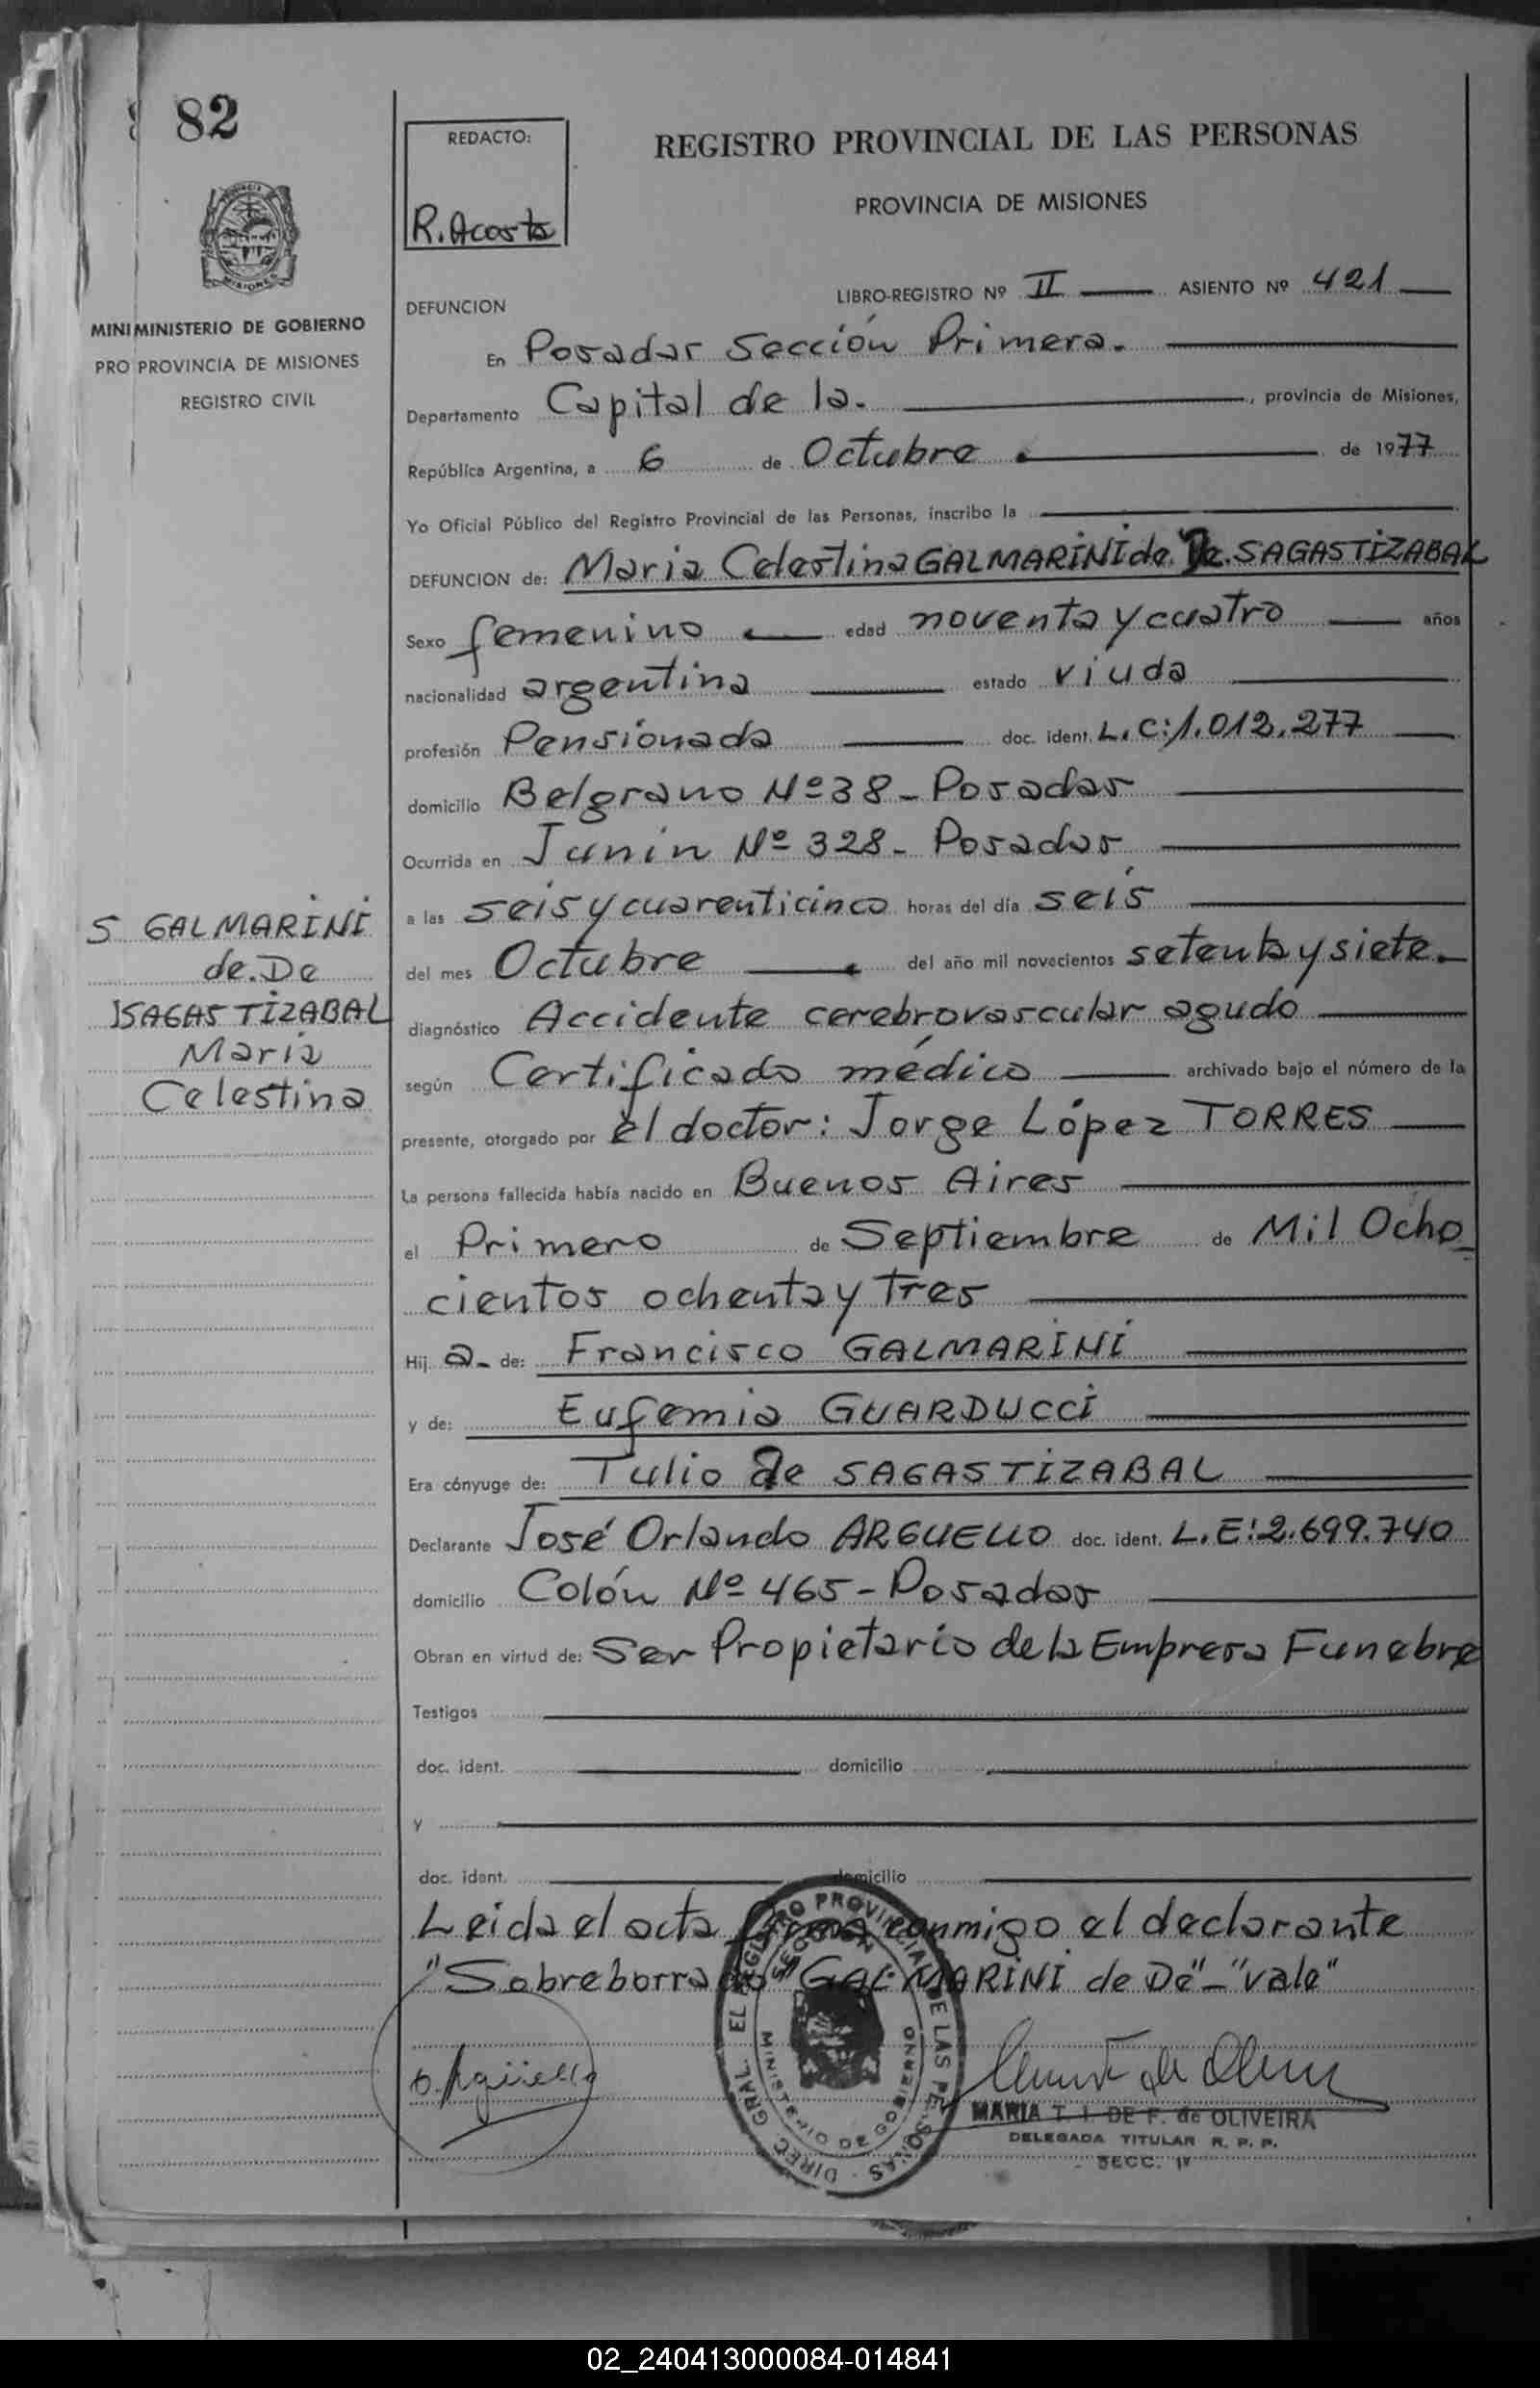 82
REDACTO:
R. Acosta
REGISTRO PROVINCIAL DE LAS PERSONAS
PROVINCIA DE MISIONES
MINIMINISTERIO DE GOBIERNO
PRO PROVINCIA DE MISIONES
REGISTRO CIVIL
DEFUNCION LIBRO-REGISTRO Nº II ASIENTO Nº 421
En Posadas Sección Primera.
Departamento Capital de la. , provincia de Misiones,
República Argentina, a 6 de Octubre de 1977
Yo Oficial Público del Registro Provincial de las Personas, inscribo la
DEFUNCION de: Maria Celestina GALMARINI de. De. SAGASTIZABAL
Sexo femenino edad noventa y cuatro años
nacionalidad argentina estado viuda
profesión Pensionada doc. ident. L.C:1.012.277
domicilio Belgrano Nº 38 - Posadas
Ocurrida en Junin Nº 328 - Posadas
a las seis y cuarenticinco horas del día seis
del mes Octubre del año mil novecientos setenta y siete.
diagnóstico Accidente cerebrovascular agudo
según Certificado médico archivado bajo el número de la
presente, otorgado por el doctor: Jorge López TORRES
La persona fallecida había nacido en Buenos Aires
el Primero de Septiembre de Mil Ocho
cientos ochenta y tres
Hij a- de: Francisco GALMARINI
y de: Eufemia GUARDUCCI
Era cónyuge de: Tulio de SAGASTIZABAL
Declarante José Orlando ARGUELLO doc. ident. L.E:2.699.740
domicilio Colón Nº 465 - Posadas
Obran en virtud de: Ser Propietario de la Empresa Funebre
Testigos
doc. ident. domicilio
y
doc. ident. domicilio
Leida el acta firma conmigo el declarante
"Sobreborrado" GALMARINI de De" - "vale"
GALMARINI
de. De
SAGASTIZABAL
Maria
Celestina
O. Agüello
DIREC. GRAL. EL REGISTRO PROVINCIAL DE LAS PERSONAS
MINISTERIO DE GOBIERNO
MARIA T. I. DE F. de OLIVEIRA
DELEGADA TITULAR R. P. P.
SECC.
02_240413000084-014841